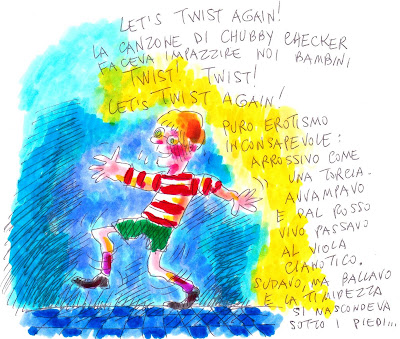 LET'S TWIST AGAIN!
LA CANZONE DI CHUBBY CHECKER
FACEVA IMPAZZIRE NOI BAMBINI
TWIST! TWIST!
LET'S TWIST AGAIN!
PURO EROTISMO
INCONSAPEVOLE:
ARROSSIVO COME
UNA TORCIA.
AVVAMPAVO
E DAL ROSSO
VIVO PASSAVO
AL VIOLA
CIANOTICO.
SUDAVO, MA BALLAVO
E LA TIMIDEZZA
SI NASCONDEVA
SOTTO I PIEDI...